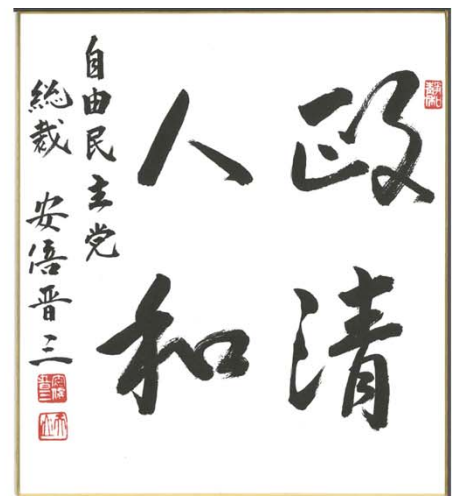 政清
人和
自由民主党
総裁 安倍晋三